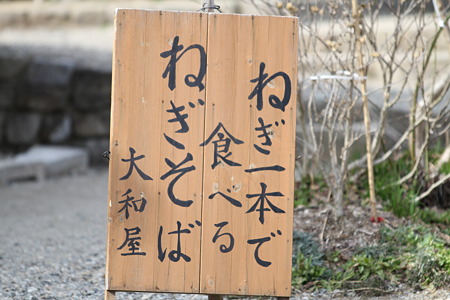 ねぎ一本で
食べる
ねぎそば
大和屋